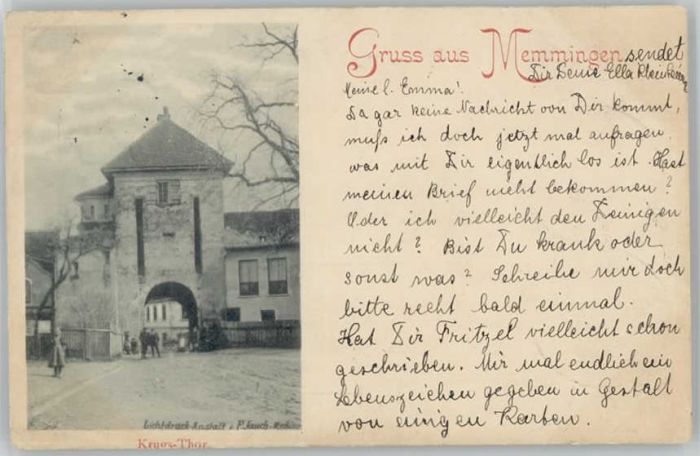 Gruss aus Memmingen sendet
Dir Deine Ella
Meine l. Emma!
Da gar keine Nachricht von Dir kommt,
muß ich doch jetzt mal anfragen
was mit Dir eigentlich los ist. Hast
meinen Brief nicht bekommen?
Oder ich vielleicht den Deinigen
nicht? Bist Du krank oder
sonst was? Schreibe mir doch
bitte recht bald einmal.
Hat Dir Fritzel vielleicht schon
geschrieben. Mir mal endlich ein
Lebenszeichen gegeben in Gestalt
von einigen Karten.
Lichtdruck-Anstalt v.
Krugs-Thor.